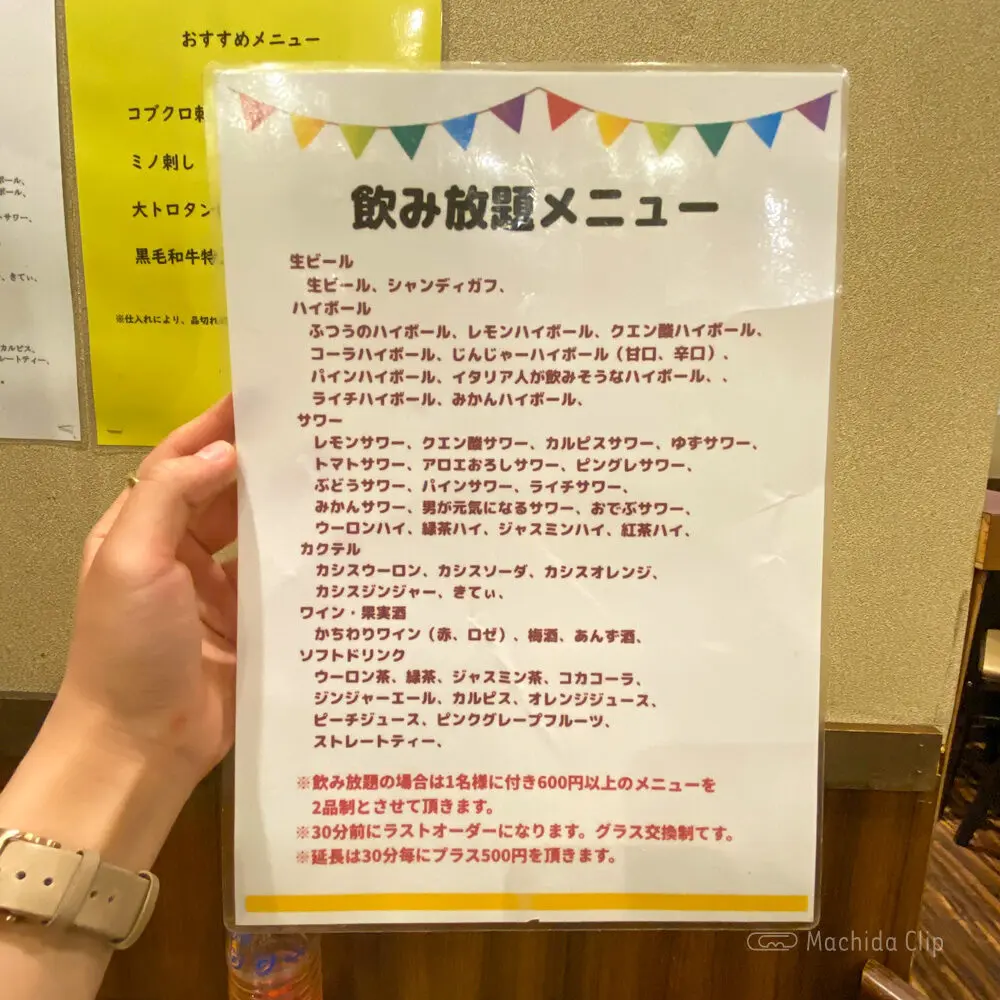 おすすめメニュー
コブクロ刺
ミノ刺し
大トロタン
黒毛和牛特
※仕入れにより、品切れ
ボール、
ボール、
サワー、
、きてぃ、
カルピス、
レートティー、
飲み放題メニュー
生ビール
生ビール、シャンディガフ、
ハイボール
ふつうのハイボール、レモンハイボール、クエン酸ハイボール、
コーラハイボール、じんじゃーハイボール（甘口、辛口）、
パインハイボール、イタリア人が飲みそうなハイボール、、
ライチハイボール、みかんハイボール、
サワー
レモンサワー、クエン酸サワー、カルピスサワー、ゆずサワー、
トマトサワー、アロエおろしサワー、ピングレサワー、
ぶどうサワー、パインサワー、ライチサワー、
みかんサワー、男が元気になるサワー、おでぶサワー、
ウーロンハイ、緑茶ハイ、ジャスミンハイ、紅茶ハイ、
カクテル
カシスウーロン、カシスソーダ、カシスオレンジ、
カシスジンジャー、きてぃ、
ワイン・果実酒
かちわりワイン（赤、ロゼ）、梅酒、あんず酒、
ソフトドリンク
ウーロン茶、緑茶、ジャスミン茶、コカコーラ、
ジンジャーエール、カルピス、オレンジジュース、
ピーチジュース、ピンクグレープフルーツ、
ストレートティー、
※飲み放題の場合は1名様に付き600円以上のメニューを
2品制とさせて頂きます。
※30分前にラストオーダーになります。グラス交換制てす。
※延長は30分毎にプラス500円を頂きます。
Machida Clip